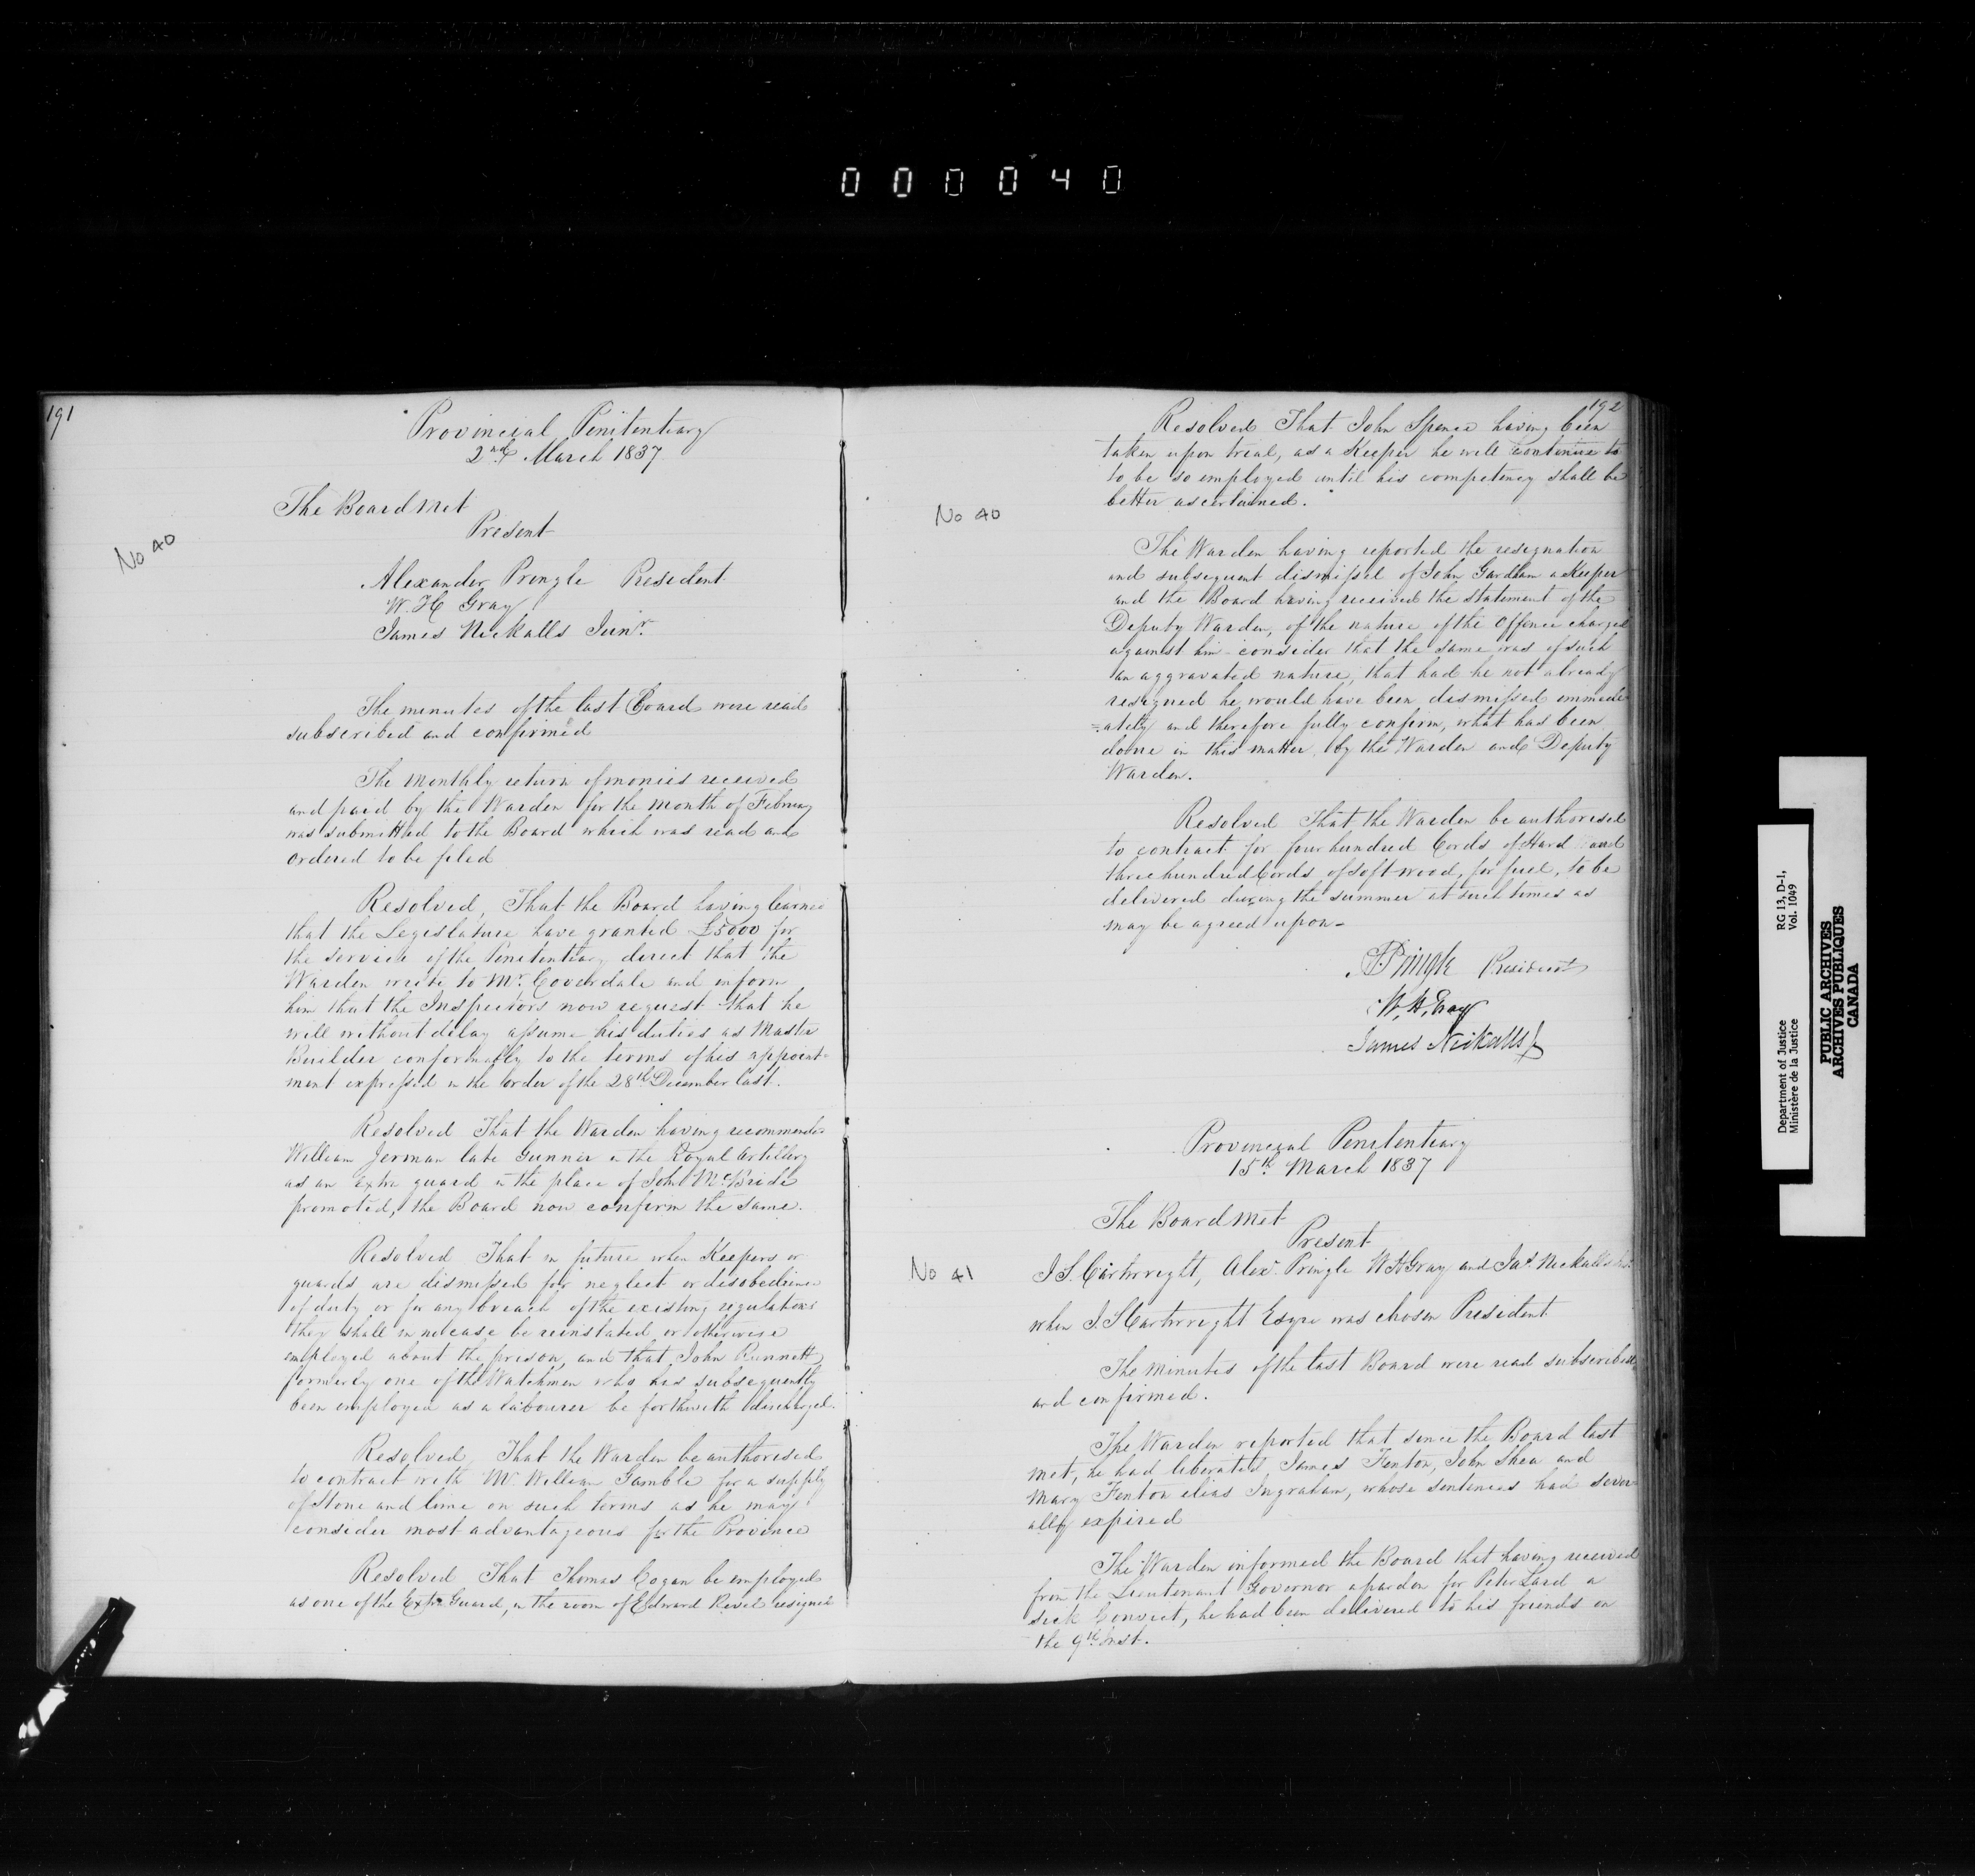 000040
191
Provincial Penitentiary
2nd March 1837
The Board Met
Present
No 40
Alexander Pringle President
W. H Gray
James Nickalls Junr.
The minutes of the last Board were read
subscribed and confirmed
The Monthly return of monies received
and paid by the Warden for the Month of February
was submitted to the Board which was read and
ordered to be filed
Resolved, That the Board having learned
that the Legislature have granted £5000 for
the service of the Penitentiary direct that the
Warden write to Mr. Coverdale and inform
him that the Inspectors now request that he
will without delay assume his duties as Master
Builder conformably to the terms of his appoint-
ment expressed in the order of the 28th December last.
Resolved That the Warden having recommended
William Jerman late Gunner in the Royal Artillery
as an extra guard in the place of John McBride
promoted, the Board now confirm the same.
Resolved That in future when Keepers or
guards are dismissed for neglect or disobedience
of duty or for any breach of the existing regulations
they shall in no case be reinstated or otherwise
employed about the prison, and that John Bennett
formerly one of the Watchmen who has subsequently
been employed as a labourer be forthwith discharged.
Resolved, That the Warden be authorised
to contract with Mr William Gamble for a supply
of Stone and lime on such terms as he may
consider most advantageous for the Province
Resolved That Thomas Cogan be employed
as one of the Extra Guard, in the room of Edward Revel resigned
192
Resolved That John Spence having been
taken upon trial, as a Keeper he will continue to
to be so employed until his competency shall be
better ascertained.
No 40
The Warden having reported the resignation
and subsequent dismissel of John Gardham a Keeper
and the Board having received the statement of the
Deputy Warden, of the nature of the Offence charged
against him consider that the same was of such
an aggravated nature, that had he not already
resigned he would have been dismissed immedi-
=ately and therefore fully confirm, what has been
done in this matter by the Warden and Deputy
Warden.
Resolved That the Warden be authorised
to contract for four hundred Cords of Hard and
three hundred Cords of soft wood, for fuel, to be
delivered during the summer at such times as
may be agreed upon-
A Pringle President
W. H. Gray
James Nickalls Jr
Provincial Penitentiary
15th March 1837
The Board Met
Present
No 41
J. S. Cartwright, Alexr. Pringle W H Gray and Jas. Nickalls Jnr.
when J. S Cartwright Esqre was chosen President
The Minutes of the last Board were read subscribed
and confirmed.
The Warden reported that since the Board last
met, he had liberated James Fenton, John Shea and
Mary Fenton elias Ingraham, whose sentences had sever-
ally expired
The Warden informed the Board that having received
from the Lieutenant Governor a pardon for Peter Lard a
sick Convict, he had been delivered to his friends on
the 9th Inst.
Department of Justice
Ministère de la Justice
RG 13, D-1,
Vol. 1049
PUBLIC ARCHIVES
ARCHIVES PUBLIQUES
CANADA